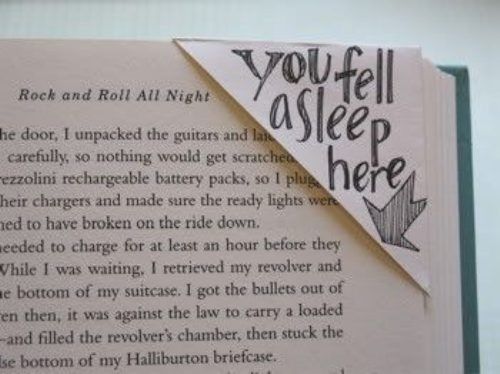 Rock and Roll All Night
you fell
asleep
here
he door, I unpacked the guitars and
carefully, so nothing would get scratched
ezzolini rechargeable battery packs, so I plug
heir chargers and made sure the ready lights were
ned to have broken on the ride down.
needed to charge for at least an hour before they
While I was waiting, I retrieved my revolver and
e bottom of my suitcase. I got the bullets out of
en then, it was against the law to carry a loaded
—and filled the revolver's chamber, then stuck the
lse bottom of my Halliburton briefcase.